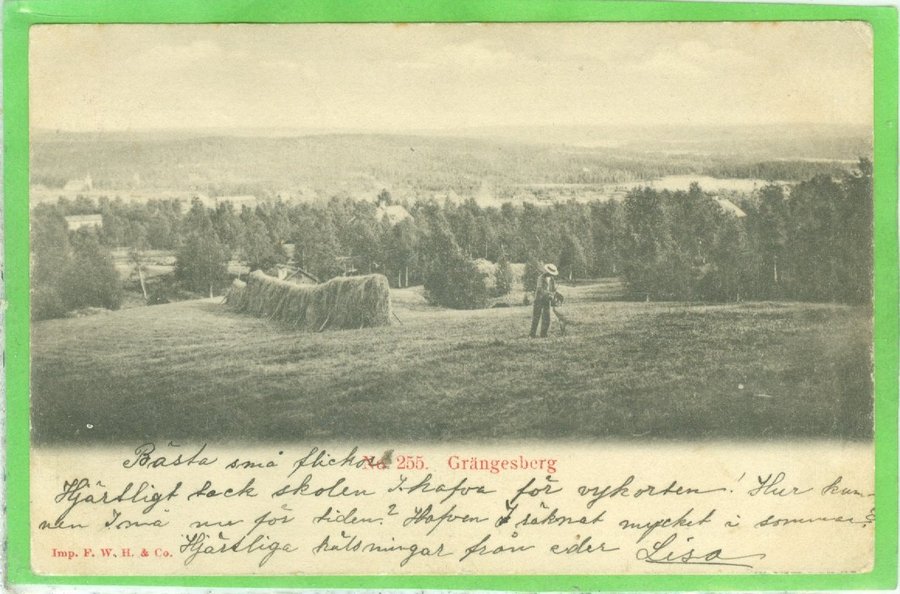 Bästa små flickor
No 255. Grängesberg
Hjärtligt tack skolen I hafva för vykorten! Hur kun-
nen I må nu för tiden? Hafven I säknat mycket i sommar?
Imp. F. W. H. & Co.
Hjärtliga hälsningar från eder Lisa